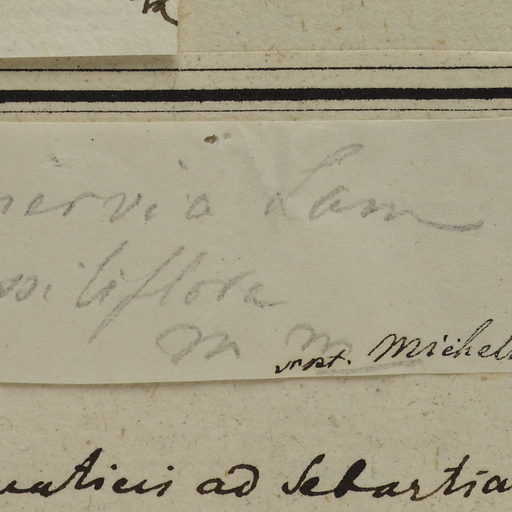 nervia Lam
ssiliflora
m m
Michel
uaticis ad Sebastia